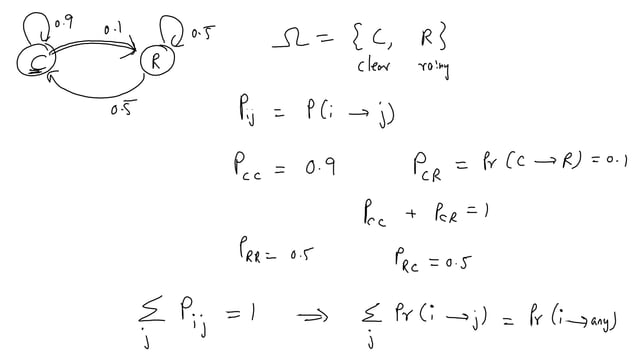 0.9 0.1 0.5
C R
0.5
Ω = {C, R}
clear rainy
P_ij = P(i → j)
P_CC = 0.9 P_CR = Pr(C → R) = 0.1
P_CC + P_CR = 1
P_RR = 0.5 P_RC = 0.5
∑_j P_ij = 1 ⟹ ∑_j Pr(i → j) = Pr(i → any)